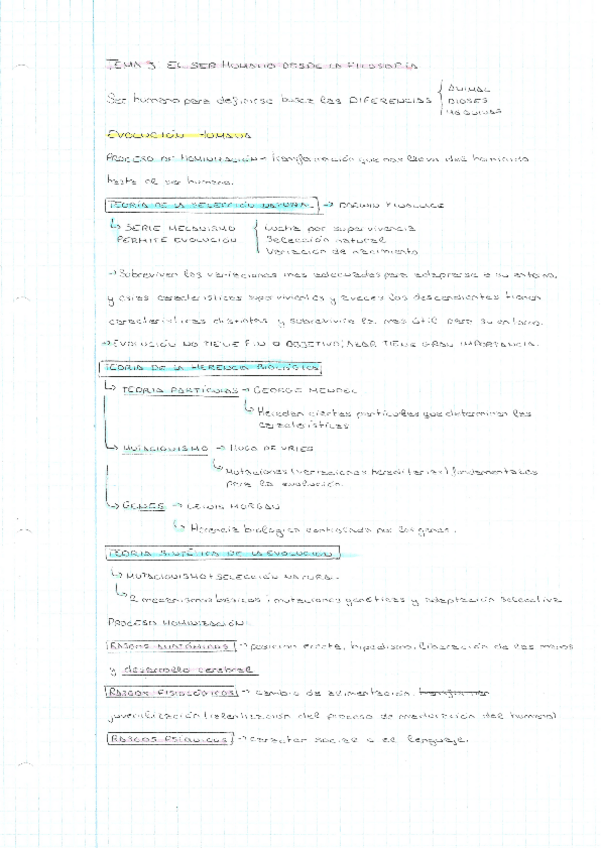 TEMA 3 EL SER HUMANO DESDE LA FILOSOFÍA
Ser humano para definirse busca las DIFERENCIAS { ANIMAL
DIOSES
MÁQUINAS
EVOLUCIÓN HUMANA
PROCESO DE HOMINIZACIÓN → transformación que nos lleva del homínido
hasta el ser humano.
TEORÍA DE LA SELECCIÓN NATURAL → DARWIN Y WALLACE
↳ SERIE MECANISMO { Lucha por supervivencia
PERMITE EVOLUCIÓN Selección natural
Variación de nacimiento
→ Sobreviven las variaciones más adecuadas para adaptarse a su entorno,
y esas características supervivientes y a veces los descendientes tienen
características distintas y sobrevivirá la más útil para su entorno.
→ EVOLUCIÓN NO TIENE FIN O OBJETIVO, AZAR TIENE GRAN IMPORTANCIA.
TEORÍA DE LA HERENCIA BIOLÓGICA
↳ TEORÍA PARTÍCULAS → GEORGE MENDEL
↳ Heredan ciertas partículas que determinan las
características
↳ MUTACIONISMO → HUGO DE VRIES
↳ Mutaciones (variaciones hereditarias) fundamentales
para la evolución.
↳ GENES → LEWIS MORGAN
↳ Herencia biológica configurada por los genes.
TEORÍA SINTÉTICA DE LA EVOLUCIÓN
↳ MUTACIONISMO + SELECCIÓN NATURAL.
↳ 2 mecanismos básicos: mutaciones genéticas y adaptación selectiva
PROCESO HOMINIZACIÓN:
RASGOS ANATÓMICOS → posición erecta, bipedismo, liberación de las manos
y desarrollo cerebral
RASGOS FISIOLÓGICOS → cambio de alimentación,
juvenilización (ralentización del proceso de maduración del humano)
RASGOS PSÍQUICOS → carácter social o el lenguaje.